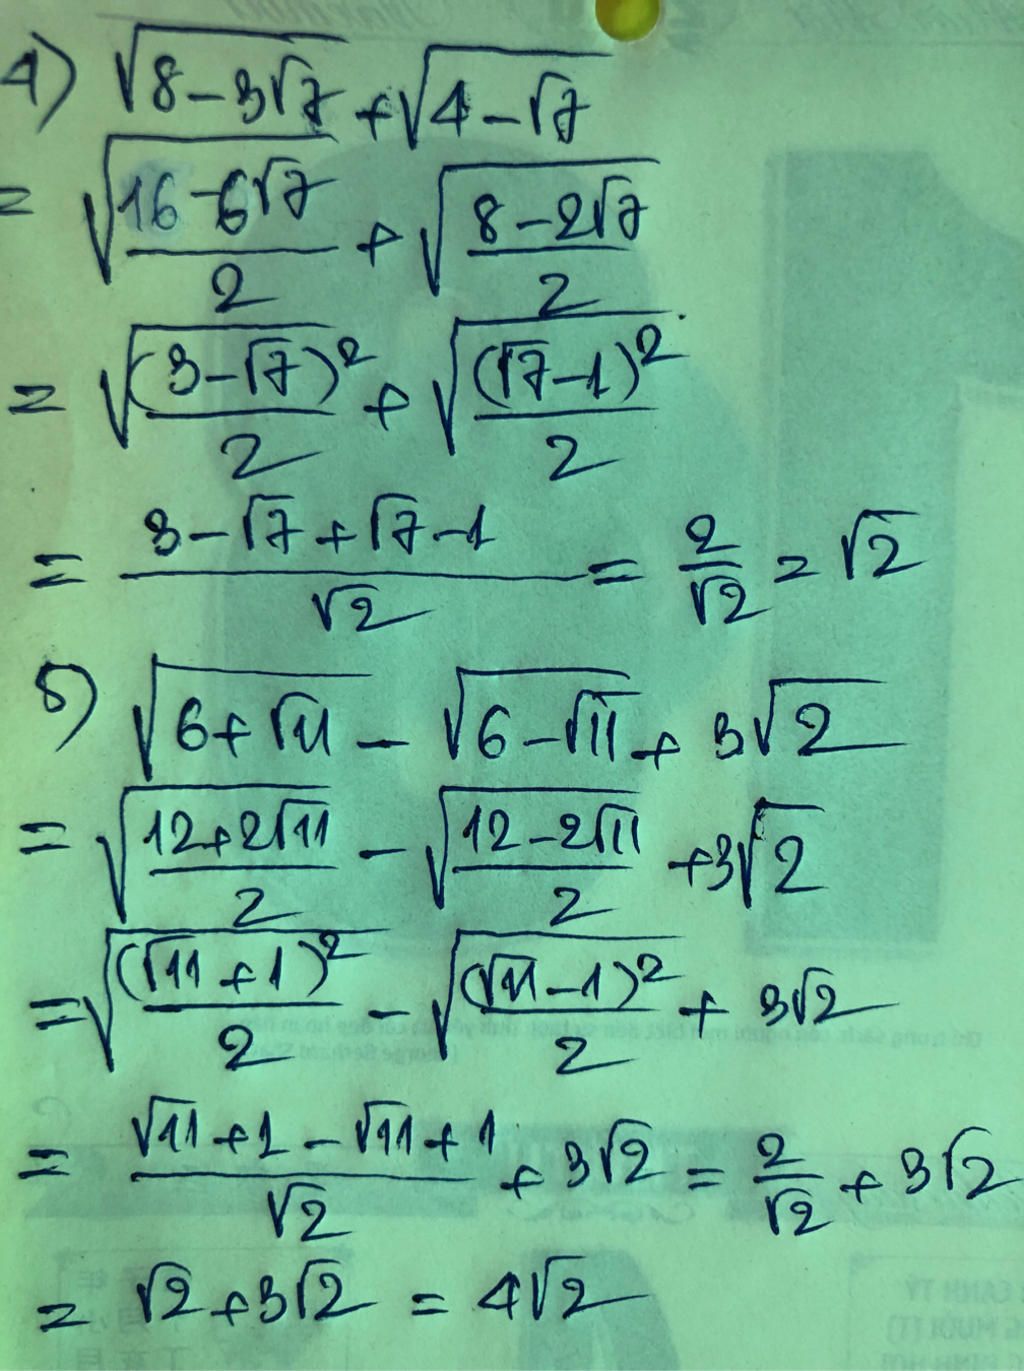 4) √(8-3√7) + √(4-√7)
= √((16-6√7)/2) + √((8-2√7)/2)
= √((3-√7)²/2) + √((√7-1)²/2)
= (3-√7+√7-1)/√2 = 2/√2 = √2
5) √(6+√11) - √(6-√11) + 3√2
= √((12+2√11)/2) - √((12-2√11)/2) + 3√2
= √((√11+1)²/2) - √((√11-1)²/2) + 3√2
= (√11+1-√11+1)/√2 + 3√2 = 2/√2 + 3√2
= √2+3√2 = 4√2